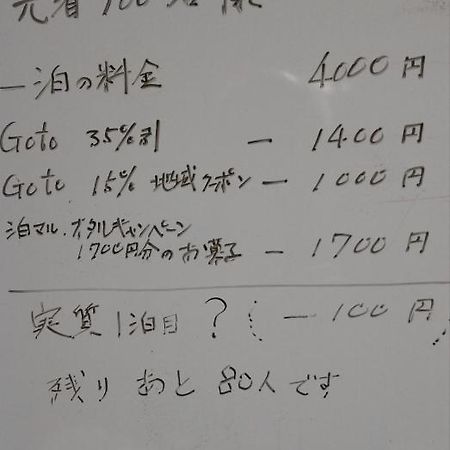 先着100名様
一泊の料金 4000円
Goto 35%割 ー 1400円
Goto 15% 地域クーポン ー 1000円
泊マル.オタルキャンペーン
1700円分のお菓子 ー 1700円
実質1泊目 ? (ー100円)
残り あと 80人です